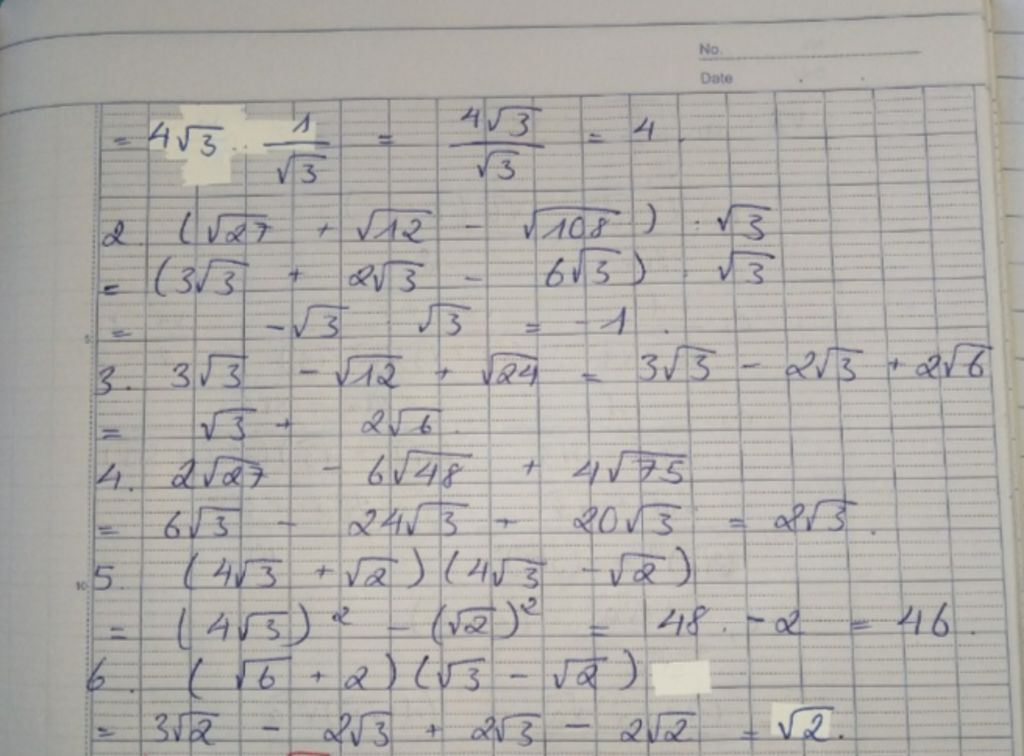 No.
Date
= 4√3 · 1/√3 = 4√3/√3 = 4.
2. (√27 + √12 - √108) : √3
= (3√3 + 2√3 - 6√3) : √3
= -√3 : √3 = -1.
5
3. 3√3 - √12 + √24 = 3√3 - 2√3 + 2√6
= √3 + 2√6.
4. 2√27 - 6√48 + 4√75
= 6√3 - 24√3 + 20√3 = 2√3.
10 5. (4√3 + √2)(4√3 - √2)
= (4√3)² - (√2)² = 48 - 2 = 46.
6. (√6 + 2)(√3 - √2)
= 3√2 - 2√3 + 2√3 - 2√2 = √2.